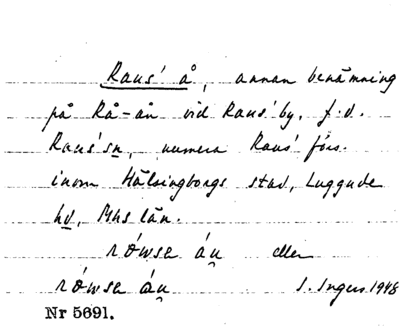 Raus' å, annan benämning
på Rå-ån vid Raus' by, f.d.
Raus' sn, numera Raus' förs.
inom Hälsingborgs stad, Luggude
hd, Mhs län.
rówsə áu̯ eller
rówsə áu̯ I. Ingers 1948
Nr 5691.